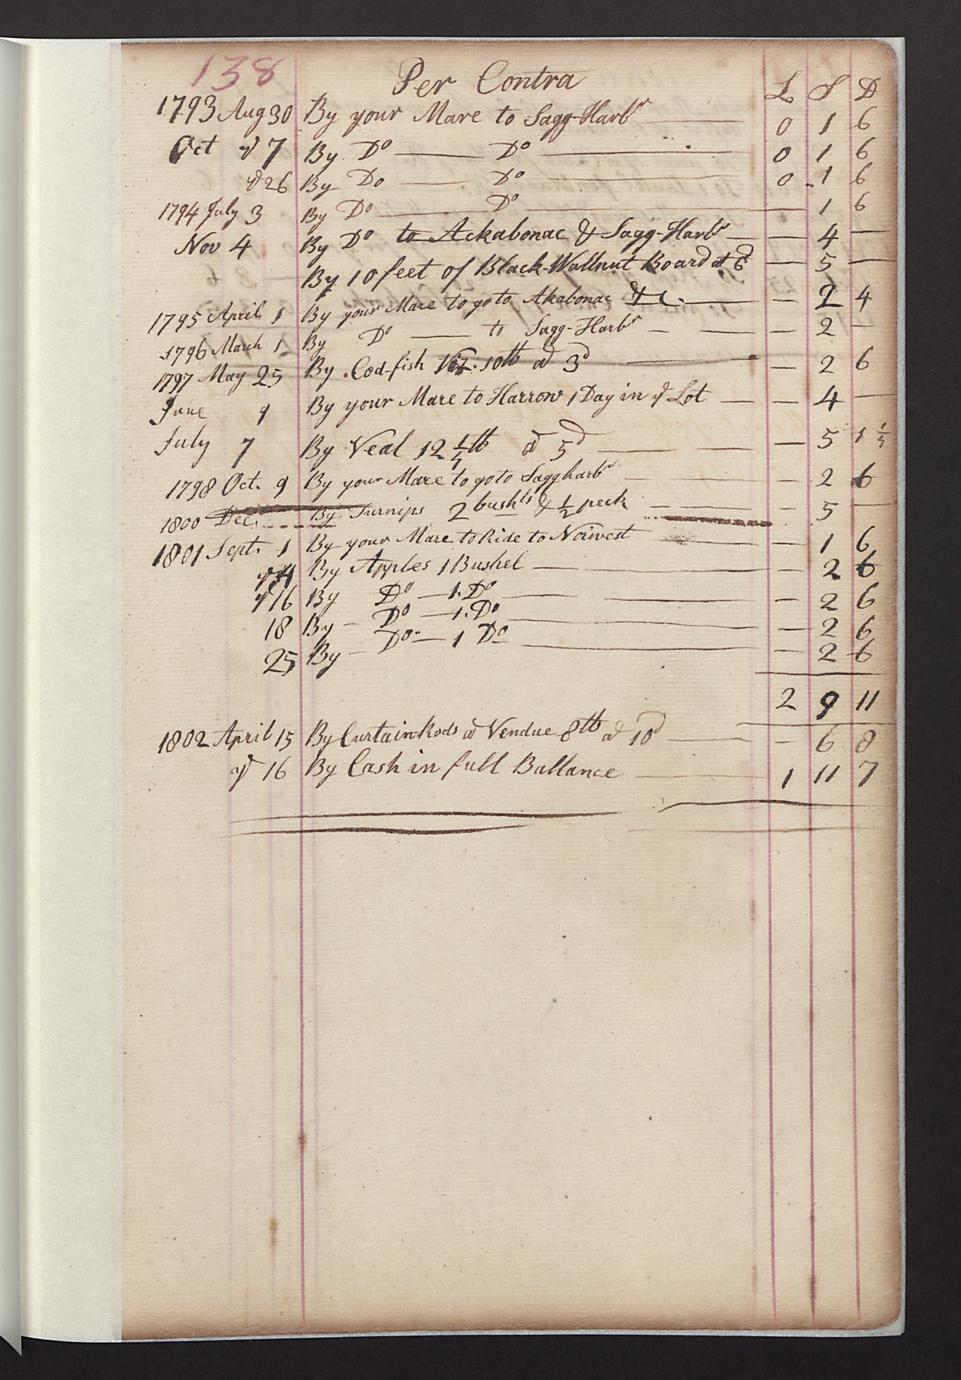 138
Per Contra £ S D
1793 Aug 30 By your Mare to Sagg-Harbr 0 1 6
Oct ye 7 By Do Do 0 1 6
ye 26 By Do Do 0 1 6
1794 July 3 By Do Do 1 6
Nov 4 By Do to Ackabonac & Sagg-Harbr — 4 —
By 10 feet of Black-Wallnut Board at 6d — 5 —
1795 April 1 By your Mare to go to Akabonac &c. — 2 4
1796 March 1 By Do to Sagg-Harbr — 2 —
1797 May 25 By Cod-fish Viz. 10lb at 3d — 2 6
June 9 By your Mare to Harrow 1 Day in ye Lot — 4 —
July 7 By Veal 12 lb at 5d — 5 1
1798 Oct. 9 By your Mare to go to Saggharbr — 2 6
1800 Dec. By Turnips 2 bushls & 1/2 peck — 5 —
1801 Sept. 1 By your Mare to Ride to Norwest — 1 6
By Apples 1 Bushel — 2 6
ye 16 By Do — 1. Do — 2 6
18 By — Do — 1. Do — 2 6
25 By — Do — 1 Do — 2 6
2 9 11
1802 April 15 By Curtain-Rods at Vendue 8lb at 10d — 6 8
ye 16 By Cash in full Ballance 1 11 7